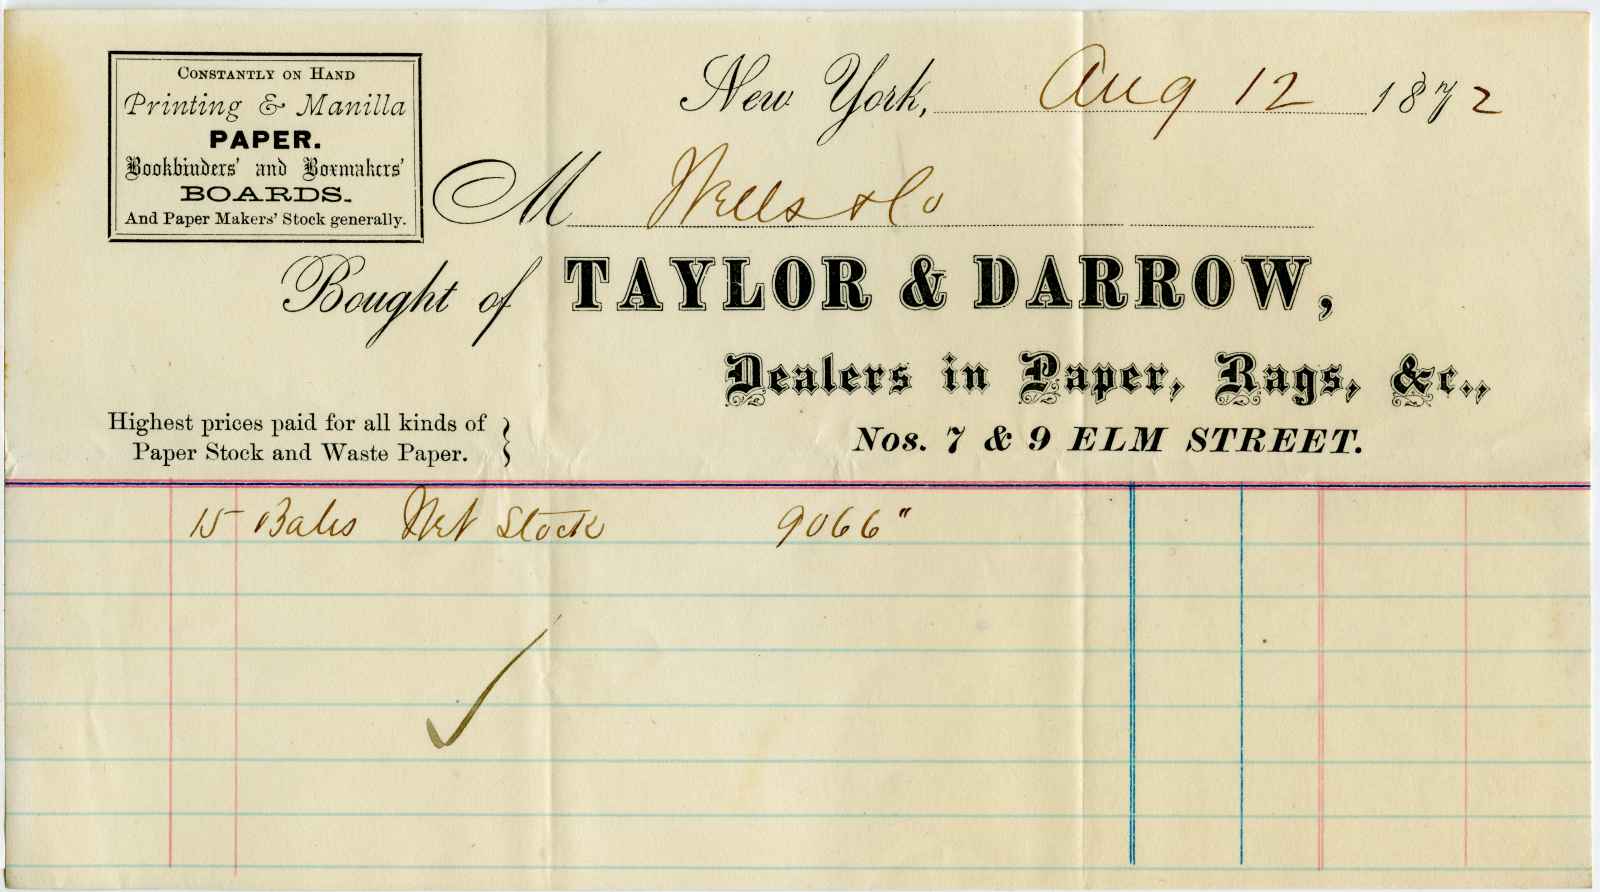 CONSTANTLY ON HAND
Printing & Manilla
PAPER.
Bookbinders' and Boxmakers'
BOARDS.
And Paper Makers' Stock generally.
New York, Aug 12 1872
M Wells & Co
Bought of TAYLOR & DARROW,
Dealers in Paper, Rags, &c.,
Nos. 7 & 9 ELM STREET.
Highest prices paid for all kinds of
Paper Stock and Waste Paper.
15 Bales Net Stock 9066"